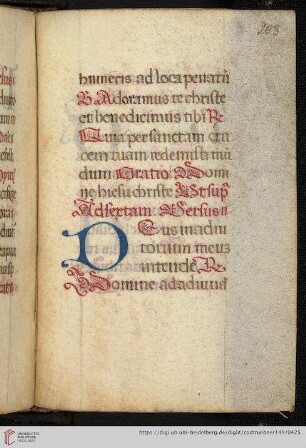 203
humeris ad loca penarū
V Adoramus te christe
et benedicimus tibi R
Quia per sanctam cru
cem tuam redemisti mū
dum Oratio Domi
ne hiesu christe Vt supͣ
Ad sextam Versus
DEus in adiu
torium meuz
intende R
Domine ad adiuuā
https://digi.ub.uni-heidelberg.de/diglit/codtruebner149/0425